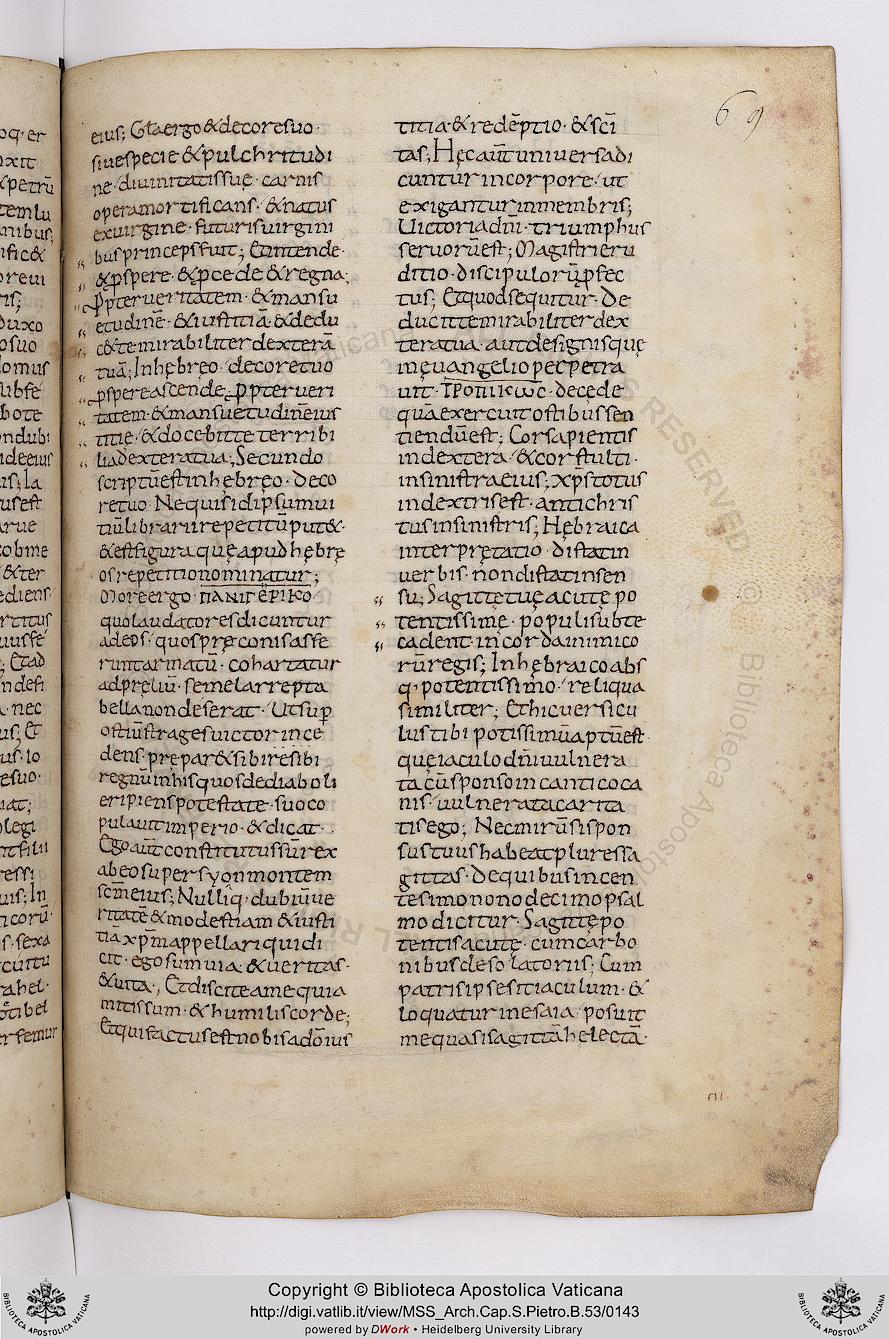 69
eius; Gła ergo & decore suo·
siue specie & pulchritudi
ne· diuinitatis suę· carnis
opera mortificans· & natus
ex uirgine· futuris uirgini
bus princeps fuit; Et intende·
& pspere· & pcede & regna;
ppter ueritatem· & mansu
etudinē· & iustitiā & dedu
c& te mirabiliter dexterā
tuā; In hebreo· decore tuo
pspere ascende· ppter ueri
tatem· & mansuetudinē eius
titie· & docebit te terribi
lia dextera tua; Secundo
scriptū est in hębręo· deco
re tuo· Nequis idipsum ui
tiū librarii repetitū put&·
& est figura quę apud hębrę
os repetitio nominatur;
More ergo· ΠΑΝΙΓΕΡΙΚΟ·
quo laudatores dicuntur
ad eos· quos pręconis asse
runt armatū· cohartatur
ad pręliū· semel arrepta
bella non deserat· Ut sup
ostiū strages uictor ince
dens· prępar& sibi resibi
regnū in his quos de diaboli
eripiens potestate· suo co
pulauit imperio· & dicat·
Ego aut̄ constitutus sū rex
ab eo super syon montem
scm̄ eius; Nulliq· dubiū ue
ritatē & modestiam & iusti
tiā xp̄m appellari qui di
cit· ego sum uia· & ueritas·
& uita; Et discite a me quia
mitis sum· & humilis corde;
Et qui factus est nobis a dō ius
titia· & redēptio· & sc̄i
tas; Hęc aut̄ uniuersa di
cuntur in corpore· ut
exigantur in membris;
Uictoria dn̄i· triumphus
seruorū est; Magistri eru
ditio· discipulorū pfec
tus; Et quod sequitur· De
ducit te mirabiliter dex
tera tua· aut de signis quę
in ęuangelio pecpetra
uit· ΤΡΟΠΙΚΩC· de cede
quā exercuit ostibus sen
tiendū est; Cor sapientis
in dextera· & cor stulti·
in sinistra eius; xp̄s totus
in dextris est· antichris
tus in sinistris; Hębraica
interprętatio· distat in
uerbis· non distat in sen
su; Sagittę tuę acutę po
tentissimę· populi subte
cadent· in corda inimico
rū regis; In hębraico abs
q· potentissimo· reliqua
similiter; Et hic uersicu
lus tibi potissimū aptū est·
quę iaculo dn̄i uulnera
ta cū sponso in cantico ca
nis· uulnerata carita
tis ego; Nec mirū si spon
sus tuus habeat plures sa
gittas· de quibus in cen
tesimo nono decimo psal
mo dicitur· Sagittę po
tentis acutę· cum carbo
nibus desolatoriis; Cum
patris ipse sit iaculum· &
loquatur in esaia· posuit
me quasi sagittā helectā·
Copyright © Biblioteca Apostolica Vaticana
http://digi.vatlib.it/view/MSS_Arch.Cap.S.Pietro.B.53/0143
powered by DWork • Heidelberg University Library